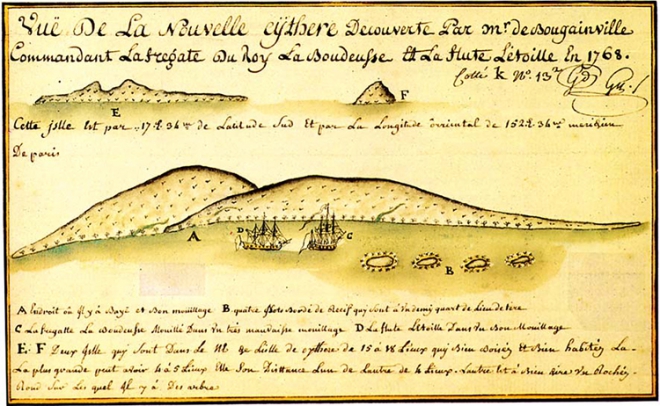 Vuë De La Nouvelle cythere Decouverte Par mr. de Bougainville
Commandant La fregate Du Roy La Boudeusse Et La flute L'etoille En 1768.
Cotté k No. 13
E
F
Cette jslle Est par 17 d. 36 de Latitude Sud Et par La Longitude orriental de 152 d. 36 meridien
De paris
A
D
C
B
A Lendroit où jl y à Baye et Bon mouillage B. quatre jslots Bordé de Recif qui sont à demy quart de Lieu de tere
C La fregatte La Boudeusse Mouillé Dans un tres mauvaisse mouillage D La flute L'etoille Dans un Bon Mouillage
E. F Deux jslle quy sont Dans Le de Lislle de cythere de 15 à 18 Lieux quy Bien Boisées Et Bien habitées La
La plus grande peut avoir 4 à 5 Lieux Elle son Distance Lun de Lautre de 4 Lieux. Lautre Est à Bien dire un Rochér
Rond sur Les quel jl y à Des arbre